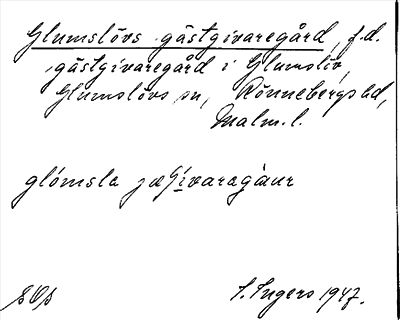 Glumslövs gästgivaregård, f.d.
gästgivaregård i Glumslöv,
Glumslövs sn, Rönnebergs hd,
Malm. l.
glómsla jæʃívaragàur
S. Ingers 1947.